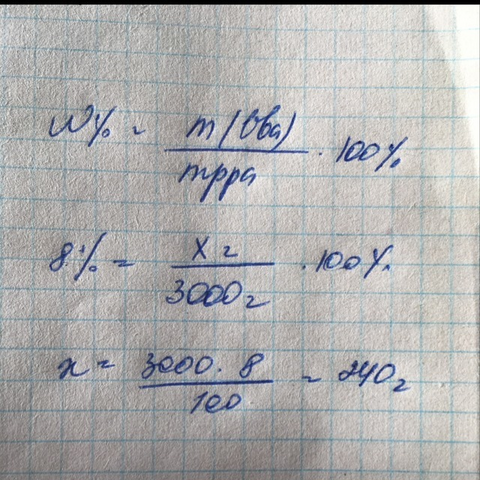 W% = m(вва) / mрра · 100%
8% = х г / 3000г · 100%
х = 3000 · 8 / 100 = 240г